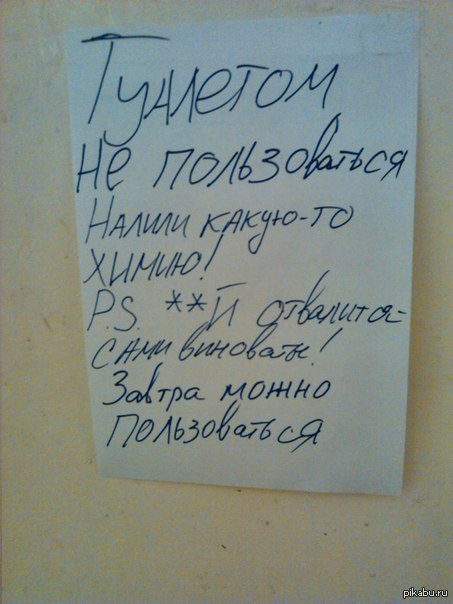 Туалетом
не пользоваться
Налили какую-то
химию!
P.S. **й отвалится-
сами виноваты!
Завтра можно
пользоваться
pikabu.ru